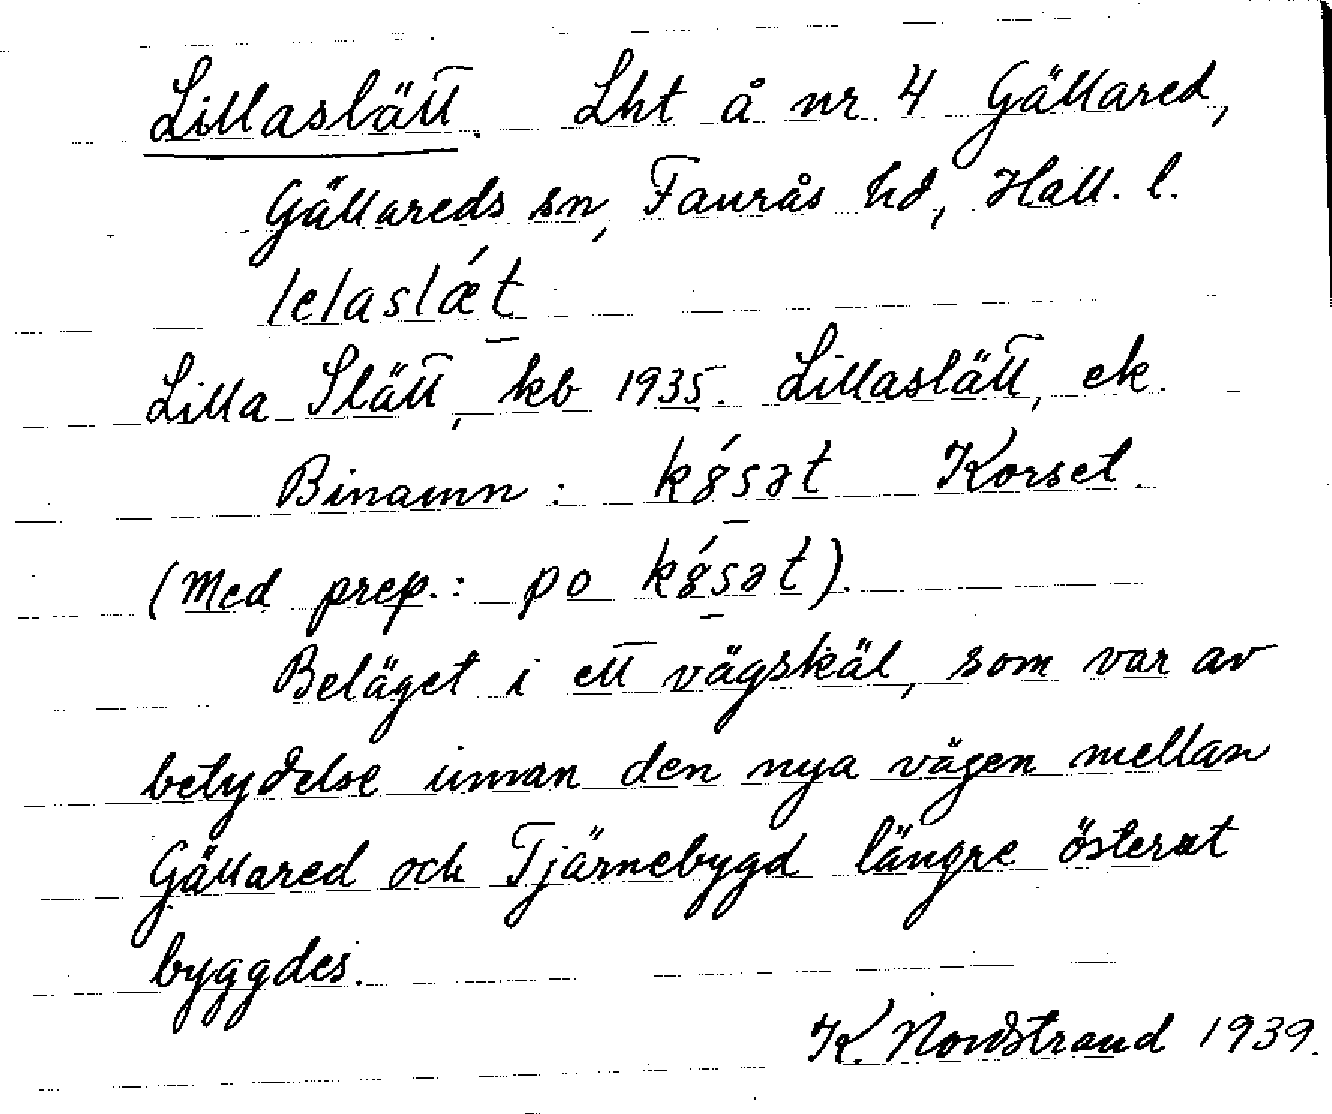 Lillaslätt. Lht å nr 4 Gällared,
Gällareds sn, Faurås hd, Hall. l.
lelaslǽt
Lilla Slätt, kb 1935. Lillaslätt, ek.
Binamn: kɤ́sət Korset.
(Med prep.: po kɤ́sət).
Beläget i ett vägskäl, som var av
betydelse innan den nya vägen mellan
Gällared och Tjärnebygd längre österut
byggdes.
K. Nordstrand 1939.